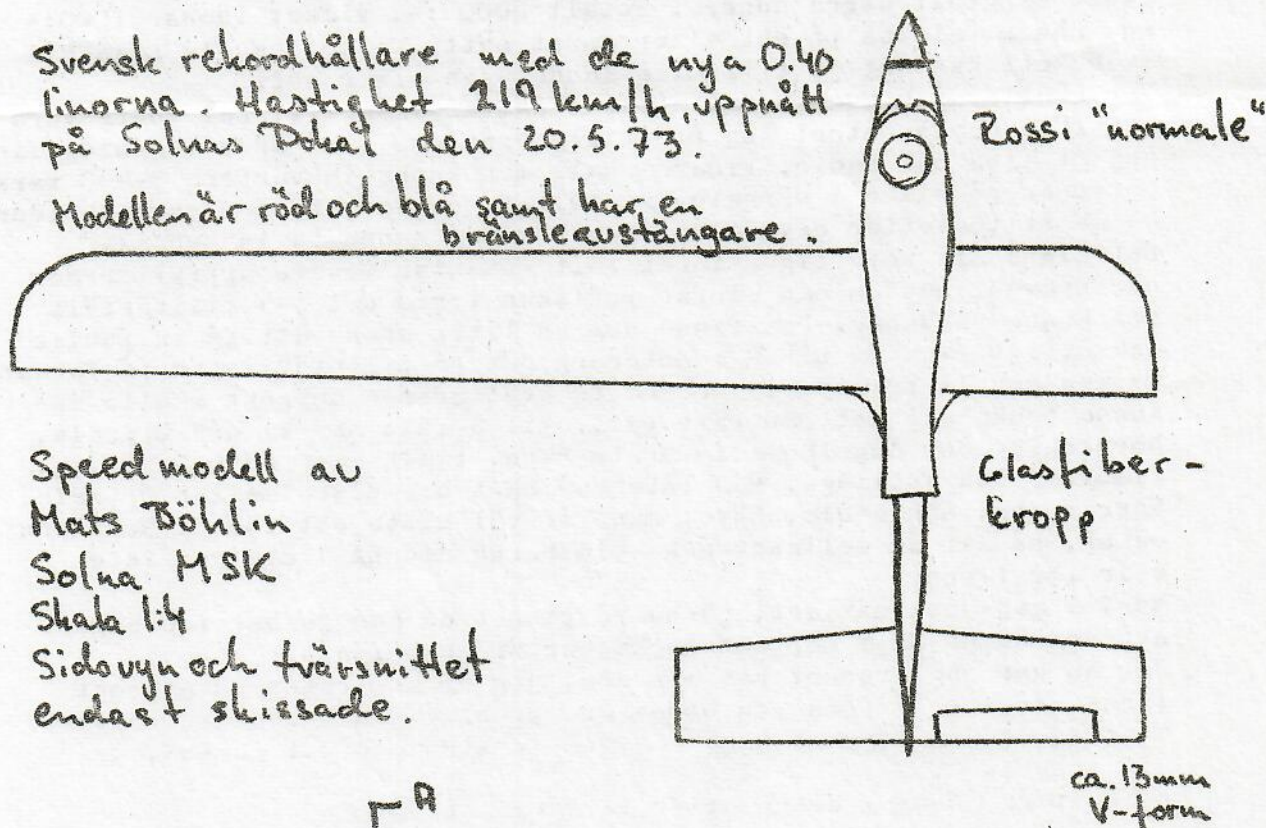 Svensk rekordhållare med de nya 0.40
linorna. Hastighet 219 km/h, uppnått
på Solnas Pokal den 20.5.73.
Rossi "normale"
Modellen är röd och blå samt har en
bränsleavstängare.
Speedmodell av
Mats Böhlin
Solna MSK
Skala 1:4
Sidovyn och tvärsnittet
endast skissade.
Glasfiber-
kropp
A
ca. 13mm
V-form